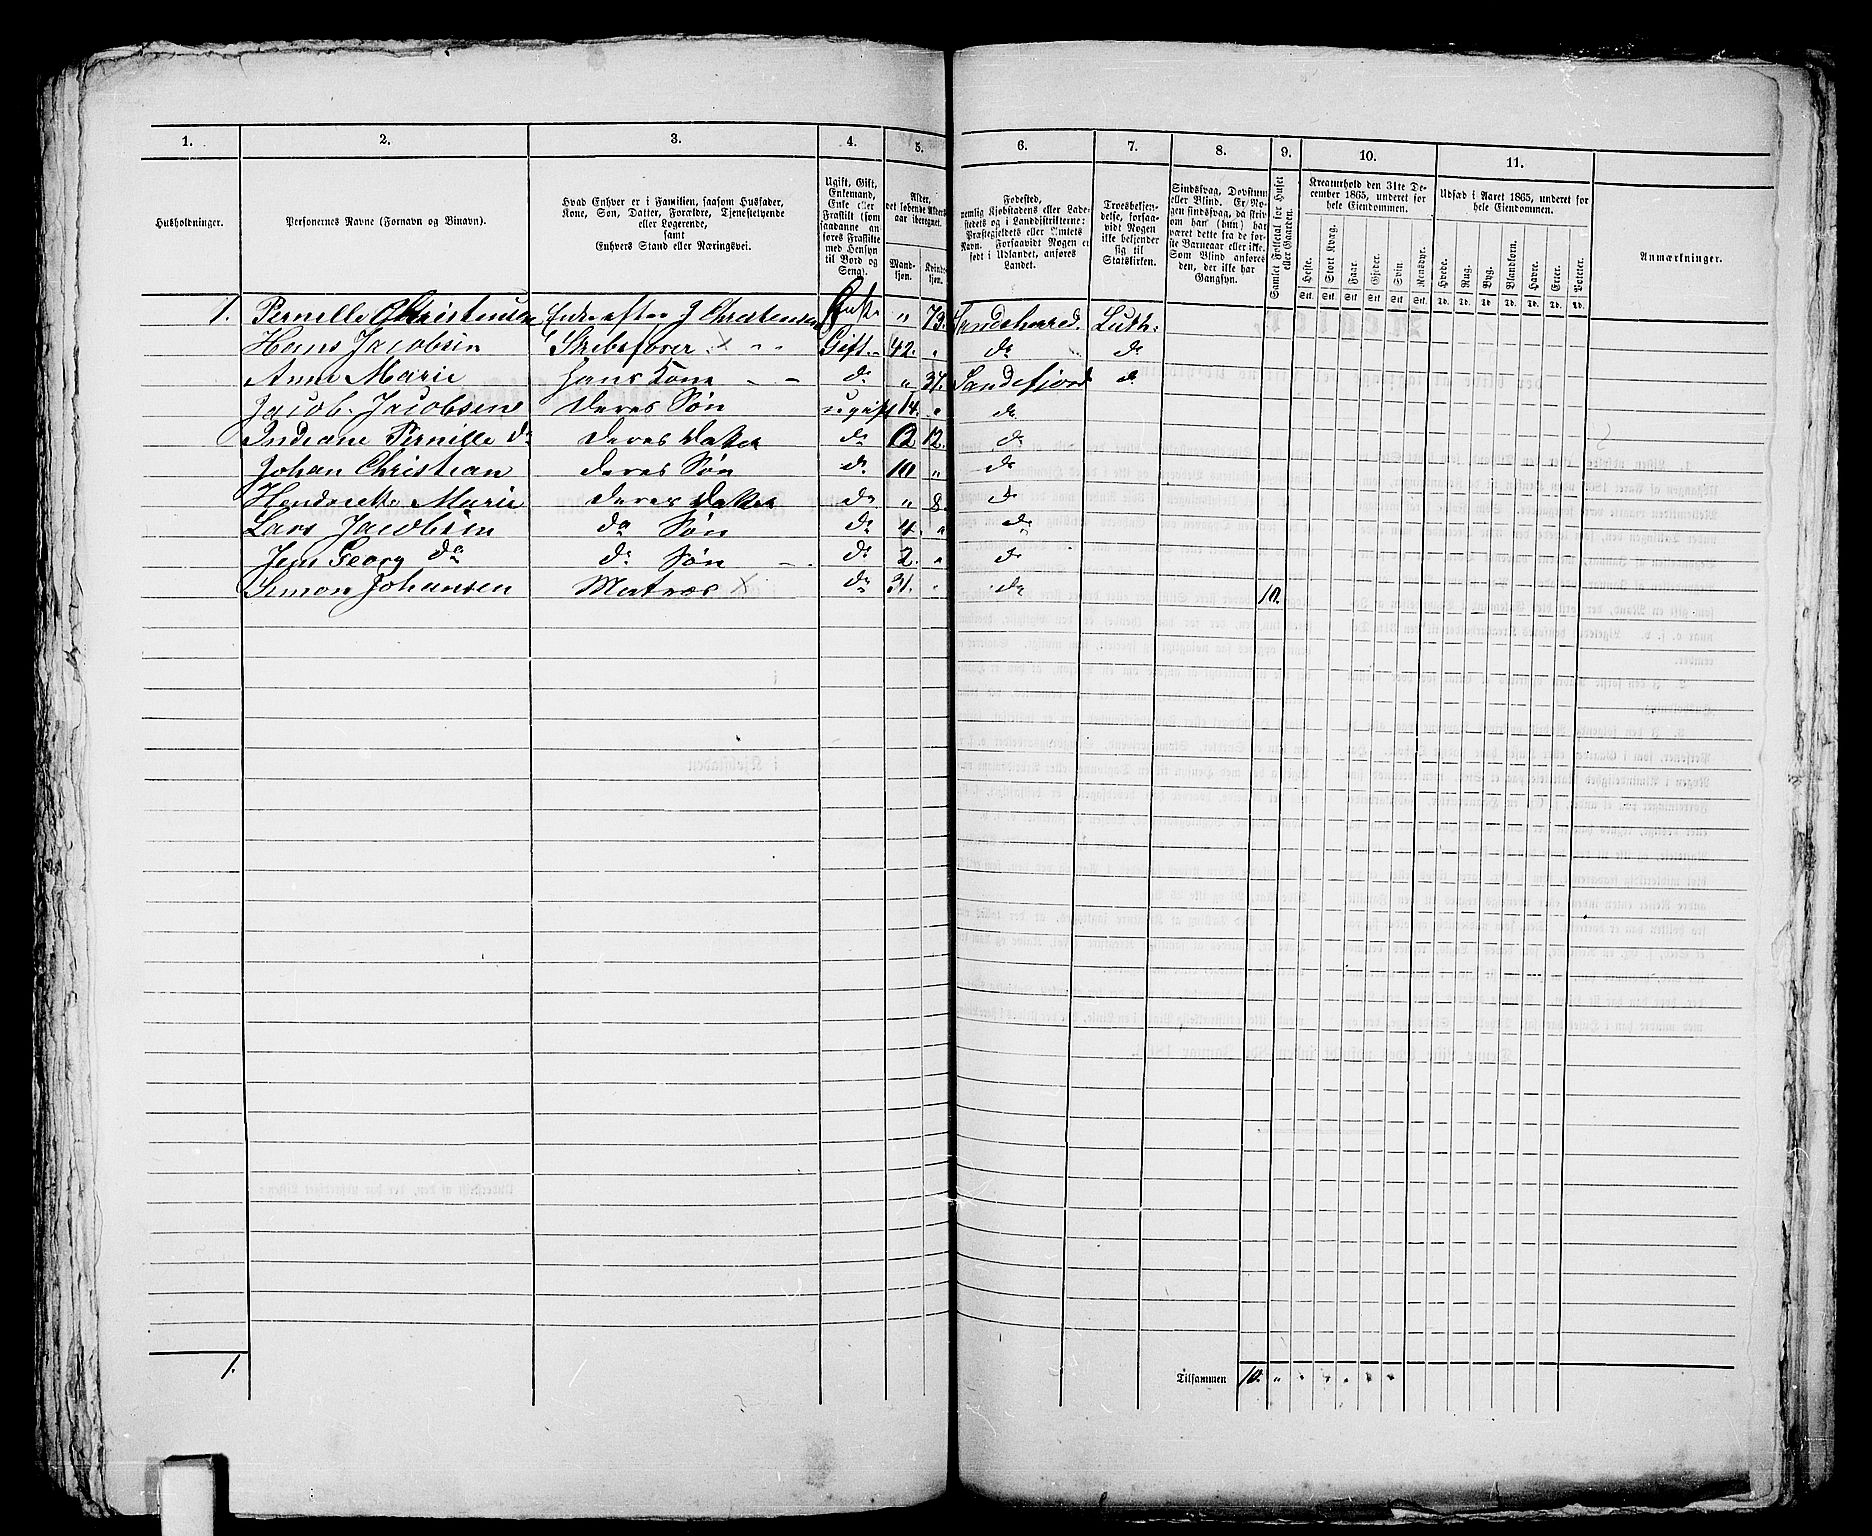 1. 2. 3. 4. 5. 6. 7. 8. 9. 10. 11.
Husholdninger. Personernes Navne (Fornavn og Binavn). Hvad Enhver er i Familien, saasom Husfader, Kone, Søn, Datter, Forældre, Tjenestetyende eller Logerende, samt Enhvers Stand eller Næringsvei. Ugift, Gift, Enkemand, Enke eller Fraskilt (som saadanne anføres Fraskilte med Hensyn til Bord og Seng). Alder, det løbende Aldersaar iberegnet. Mandkjøn. Kvindekjøn. Fødested, nemlig Kjøbstadens eller Ladestedets og i Landdistrikterne: Præstegjeldets eller Amtets Navn. Forsaavidt Nogen er født i Udlandet, anføres Landet. Troesbekjendelse, forsaavidt Nogen ikke bekjender sig til Statskirken. Sindssvag, Døvstum eller Blind. Samlet Folketal for Huset eller Gaarden. Kreaturhold den 31te December 1865, underet for hele Eiendommen. Heste. Stort Kvæg. Faar. Gjeder. Svin. Rensdyr. Udsæd i Aaret 1865, underet for hele Eiendommen. Hvede. Rug. Byg. Blandkorn. Havre. Erter. Poteter. Anmærkninger.
1. Pernille Christensen Enke efter J Christensen Enke " 73 Sandeherred. Luth:
Hans Jacobsen Skibsfører x " " Gift 42. " do do
Anne Marie Hans Kone - - do " 37. Sandefjord do
Jacob. Jacobsen Deres Søn ugift 14. " do
Indiane Pernille do Deres Datter do 12. do
Johan Christian Deres Søn do 10 " do
Hendrikke Marie Deres Datter do " 8. do
Lars Jacobsen do Søn do 4. " do
Jens Georg do do Søn do 2. " do
Simon Johansen Matros x do 31. " do 10.
1. Tilsammen 10. " " " " " "